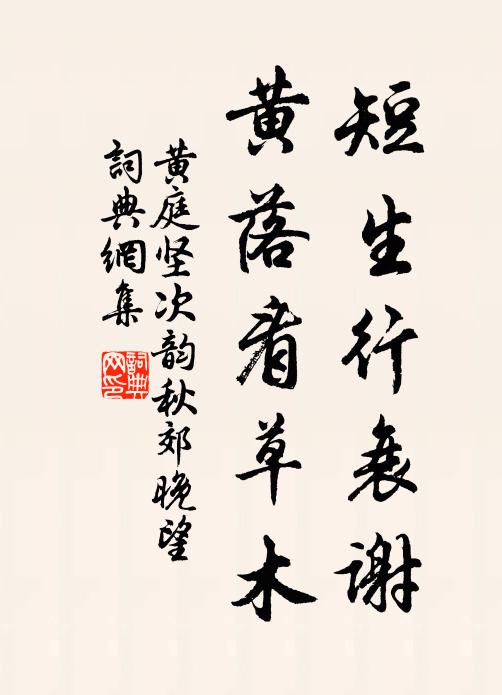 短生行衰谢
黄落看草木
黄庭坚次韵秋郊晚望
词典網集
詞典网印